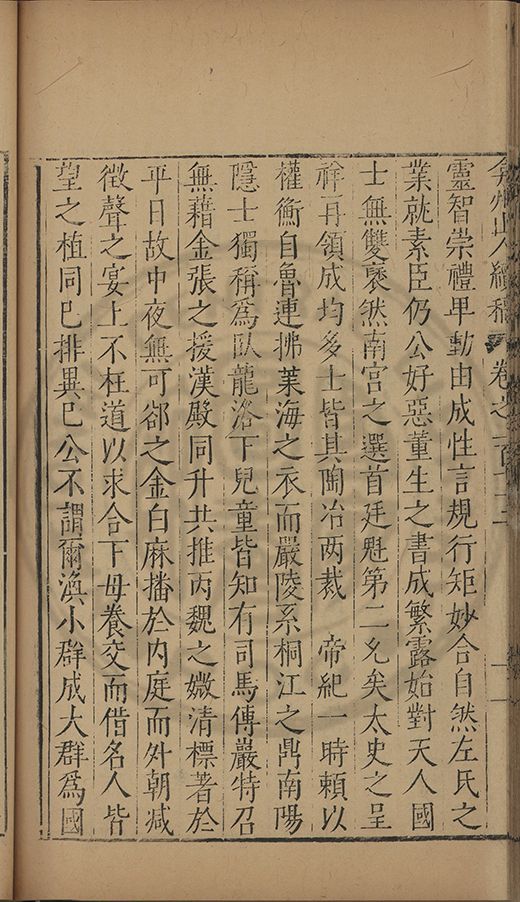 弇州山人續稿 卷之一百三十 一
靈智崇禮卑動由成性言規行矩妙合自然左氏之
業就素臣仍公好惡董生之書成繁露始對天人國
士無雙褎然南宮之選首廷魁第二允矣太史之呈
祥再領成均多士皆其陶冶两裁 帝紀一時頼以
權衡自魯連拂菓海之衣而嚴陵系桐江之鼎南陽
隱士獨稱爲臥龍洛下兒童皆知有司馬傳巖特召
無藉金張之援漢殿同升共推丙魏之媺清標著於
平日故中夜無可郤之金白麻播於内庭而外朝减
徴聲之宴上不枉道以求合下毋養交而借名人皆
望之植同已排異已公不謂爾渙小群成大群爲國